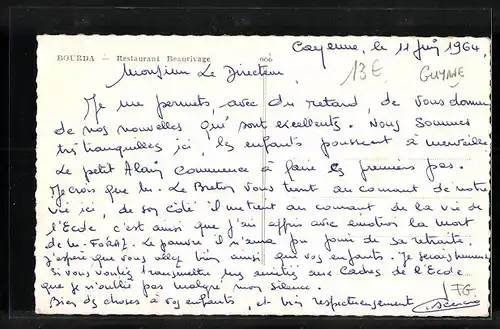 Cayenne, le 11 Juin 1964.
BOURDA — Restaurant Beaurivage
13 E
GUYANE
Monsieur Le Directeur,
Je me permets, avec du retard, de vous donner
de nos nouvelles qui sont excellents. Nous sommes
très tranquilles ici, les enfants poussent à merveille
Le petit Alain commence à faire les premiers pas.
Je crois que M. Le Breton vous tient au courant de notre
vie ici, de son côté il me tient au courant de la vie de
l'Ecole, c'est ainsi que j'ai appris avec émotion la mort
de M. Le pauvre il n'aura pu jouir de sa retraite.
J'espère que vous allez bien ainsi que vos enfants. Je serais heureux
Si vous vouliez transmettre mes amitiés aux Cadres de l'Ecole
que je n'oublie pas malgré mon silence.
Bien des choses à vos enfants, et bien respectueusement
FG